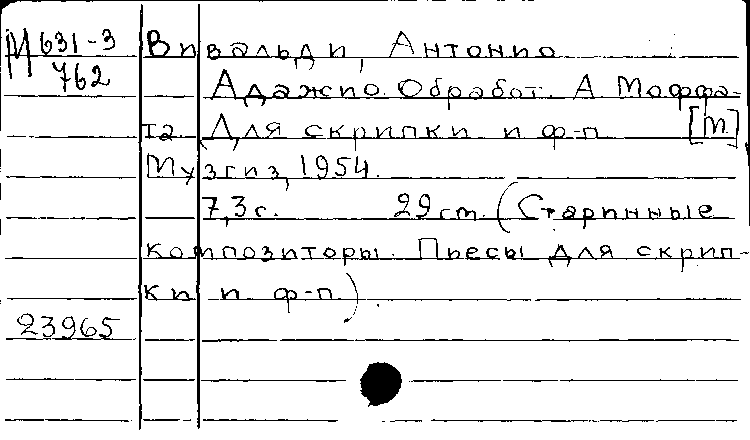 М 631-3 Вивальди, Антонио
762 Адажио. Обработ. А. Моффа-
та. Для скрипки и ф-п [М]
Музгиз, 1954.
7,3 с. 29 см. (Старинные
композиторы. Пьесы для скрип-
ки и ф-п.)
23965